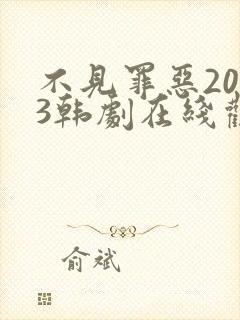 不見罪惡20
3韩劇在綫
俞斌